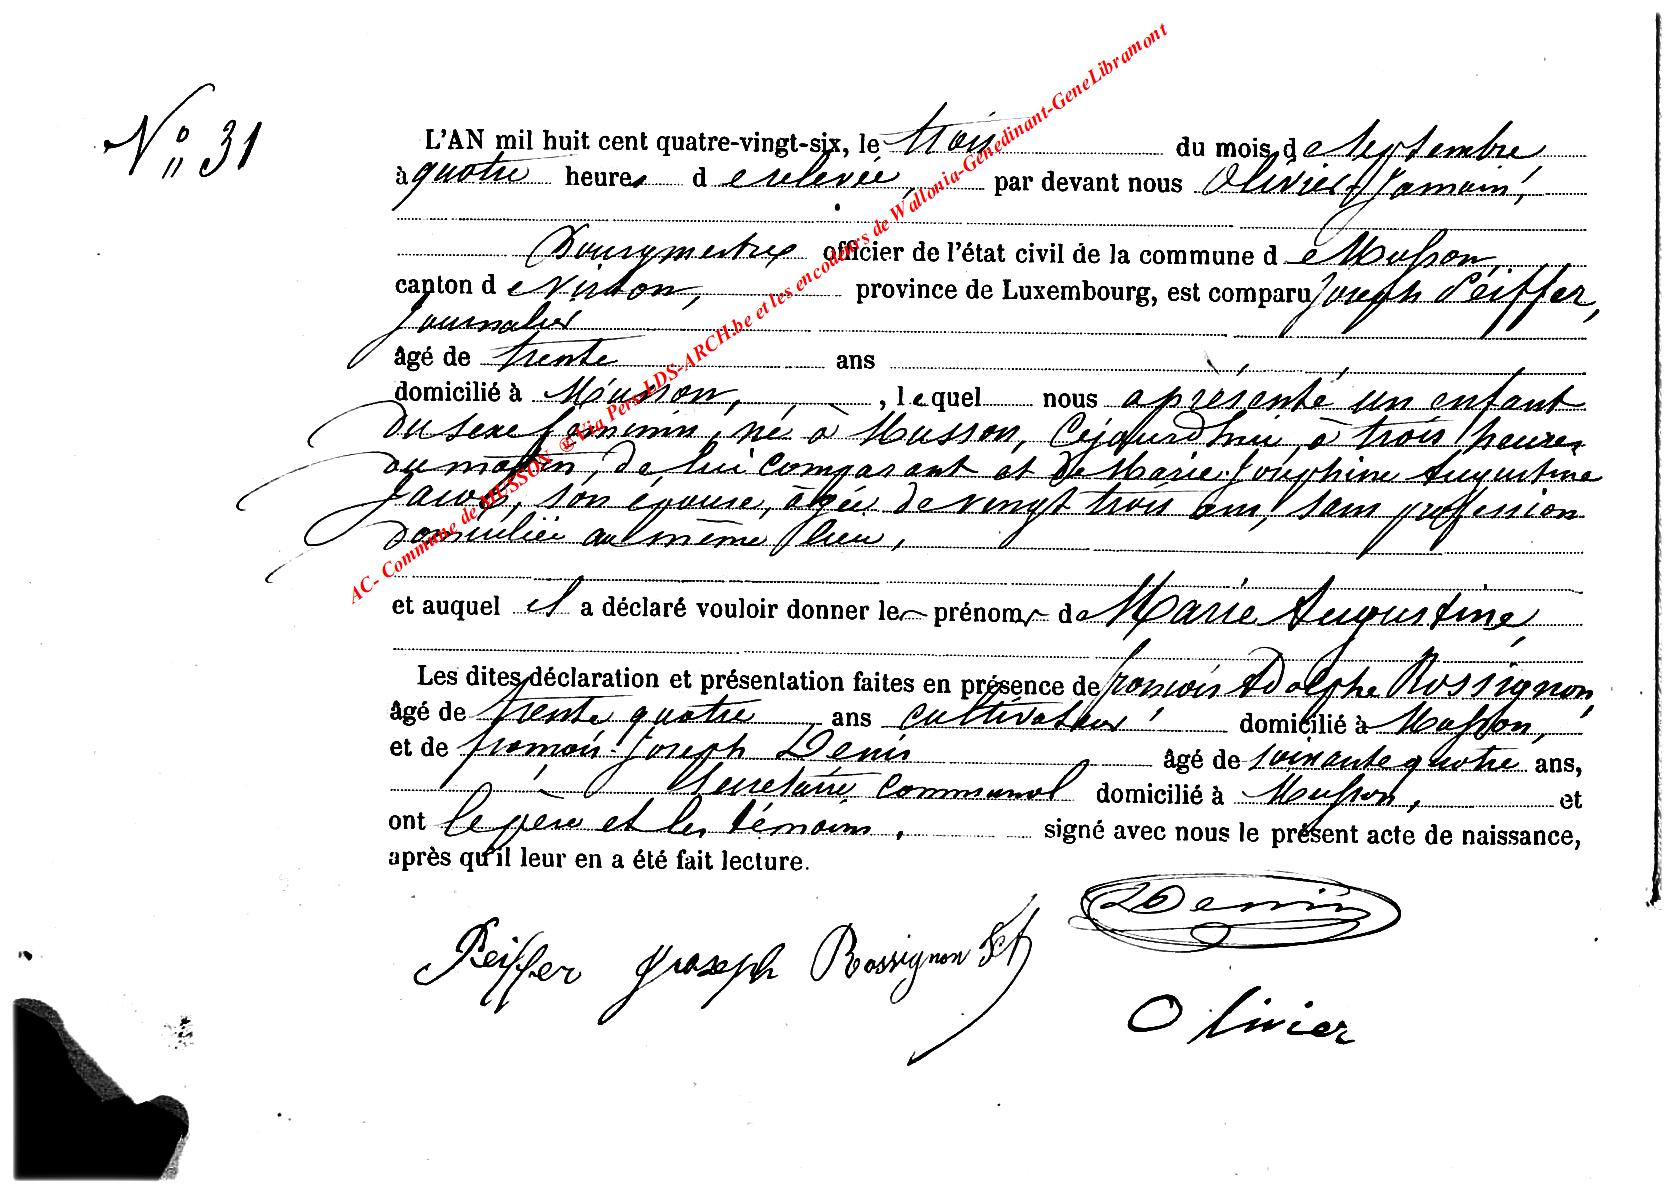 N° 31
L'AN mil huit cent quatre-vingt-six, le trois du mois de Septembre
à quatre heures de relevée, par devant nous Olivier Jamain,
Bourgmestre officier de l'état civil de la commune de Musson,
canton de Virton, province de Luxembourg, est comparu Joseph Peiffer,
Journalier
âgé de trente ans
domicilié à Musson, , lequel nous a présenté un enfant
du sexe féminin, né à Musson, cejourd'hui, à trois heures
du matin, de lui comparant et de Marie Joséphine Augustine
son épouse, âgée de vingt trois ans, sans profession
domiciliée au même lieu,
et auquel il a déclaré vouloir donner les prénoms de Marie Augustine,
Les dites déclaration et présentation faites en présence de françois Adolphe Rossignon,
âgé de trente quatre ans cultivateur domicilié à Musson,
et de françois Joseph Denis âgé de soixante quatre ans,
Secrétaire communal domicilié à Musson, et
ont le père et les témoins, signé avec nous le présent acte de naissance,
après qu'il leur en a été fait lecture.
Denis
Peiffer Joseph Rossignon
Olivier
AC- Commune de MUSSON ©Via Pers-LDS-ARCH.be et les encodeurs de Wallonia-Genedinant-GeneLibramont